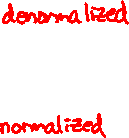 denormalized
normalized